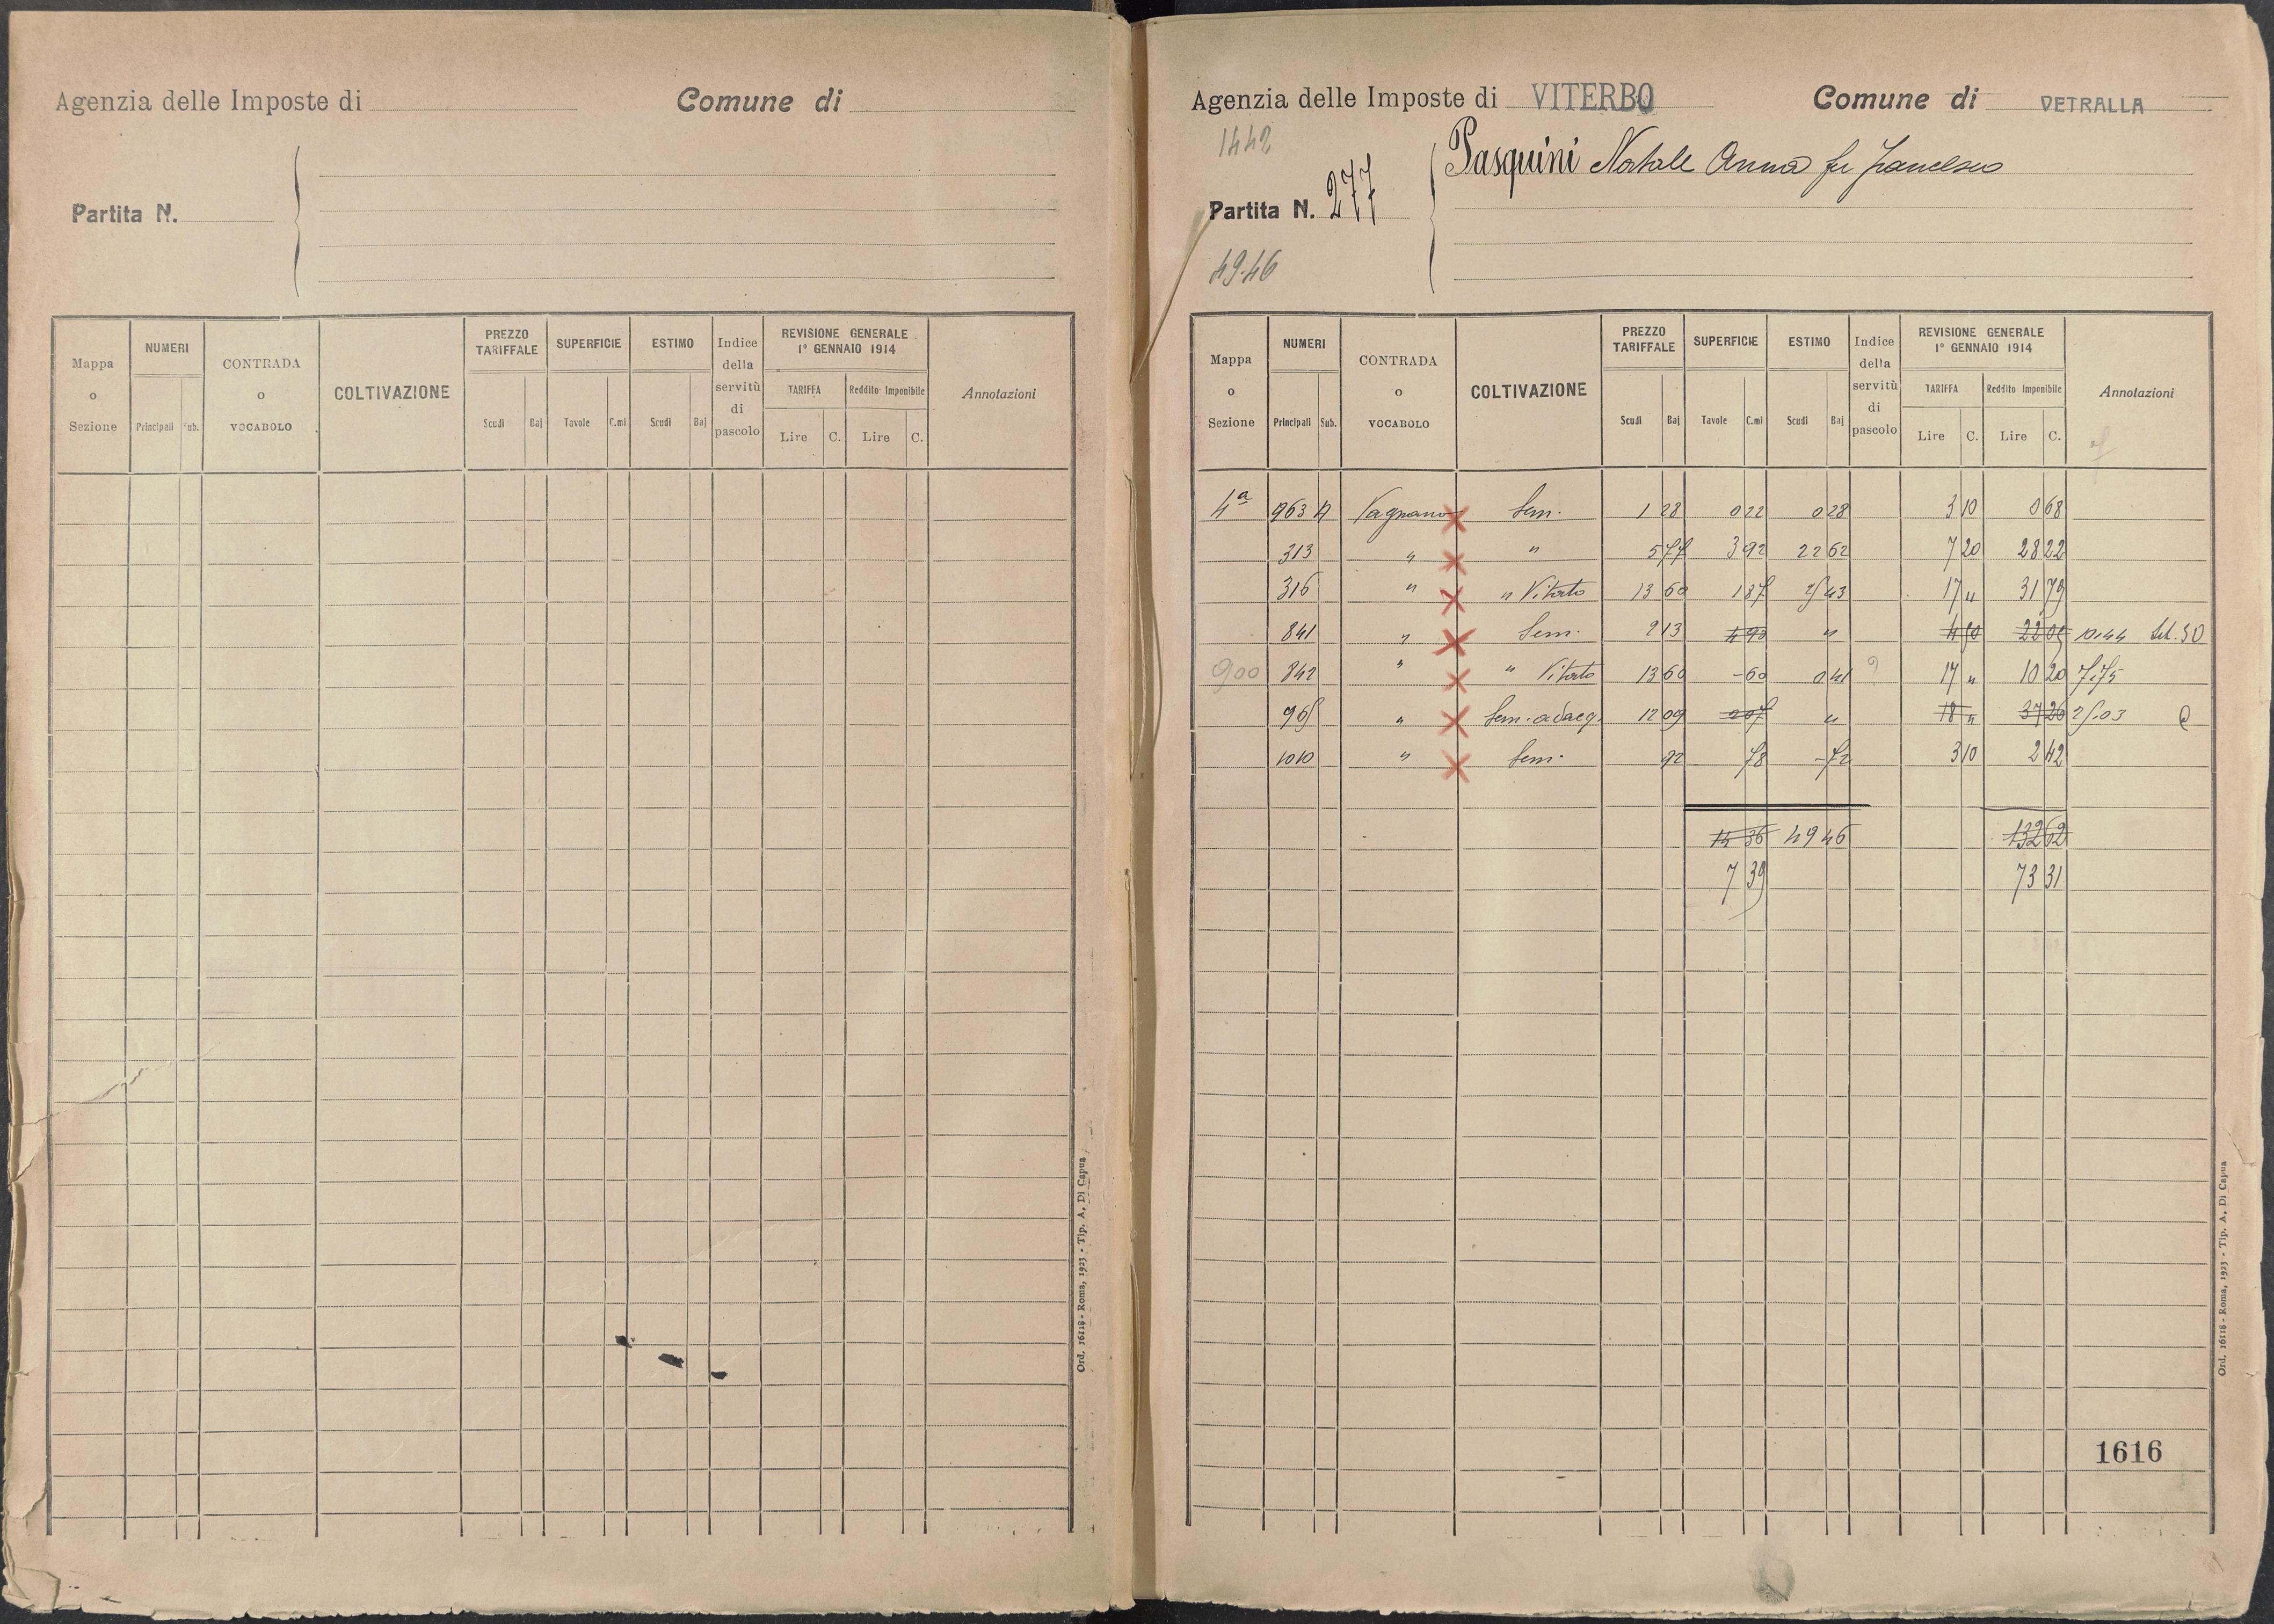 Agenzia delle Imposte di Comune di
Partita N.
Mappa o Sezione NUMERI Principali Sub. CONTRADA o VOCABOLO COLTIVAZIONE PREZZO TARIFFALE Scudi Baj SUPERFICIE Tavole C.mi ESTIMO Scudi Baj Indice della servitù di pascolo REVISIONE GENERALE 1° GENNAIO 1914 TARIFFA Lire C. Reddito Imponibile Lire C. Annotazioni
Ord. 16118 - Roma, 1923 - Tip. A. Di Capua
Agenzia delle Imposte di VITERBO Comune di VETRALLA
1442
Pasquini Natale Anna fu Francesco
Partita N. 277
49.46
Mappa o Sezione NUMERI Principali Sub. CONTRADA o VOCABOLO COLTIVAZIONE PREZZO TARIFFALE Scudi Baj SUPERFICIE Tavole C.mi ESTIMO Scudi Baj Indice della servitù di pascolo REVISIONE GENERALE 1° GENNAIO 1914 TARIFFA Lire C. Reddito Imponibile Lire C. Annotazioni
4ª 963 Vagnano Sem. 1 28 0 22 0 28 3 10 0 68
313 " " 5 77 3 92 22 62 7 20 28 22
316 " " Vitato 13 60 1 87 25 43 17 " 31 79
841 " Sem. 2 13 4 90 " 4 50 22 05 10.44
900 842 " " Vitato 13 60 - 60 0 41 17 " 10 20 7.75
965 " Sem. adacq. 12 09 2 07 " 18 " 37 26 25.03
1010 " Sem. 92 78 - 72 3 10 2 42
14 36 49 46 132 62
7 39 73 31
1616
Ord. 16118 - Roma, 1923 - Tip. A. Di Capua